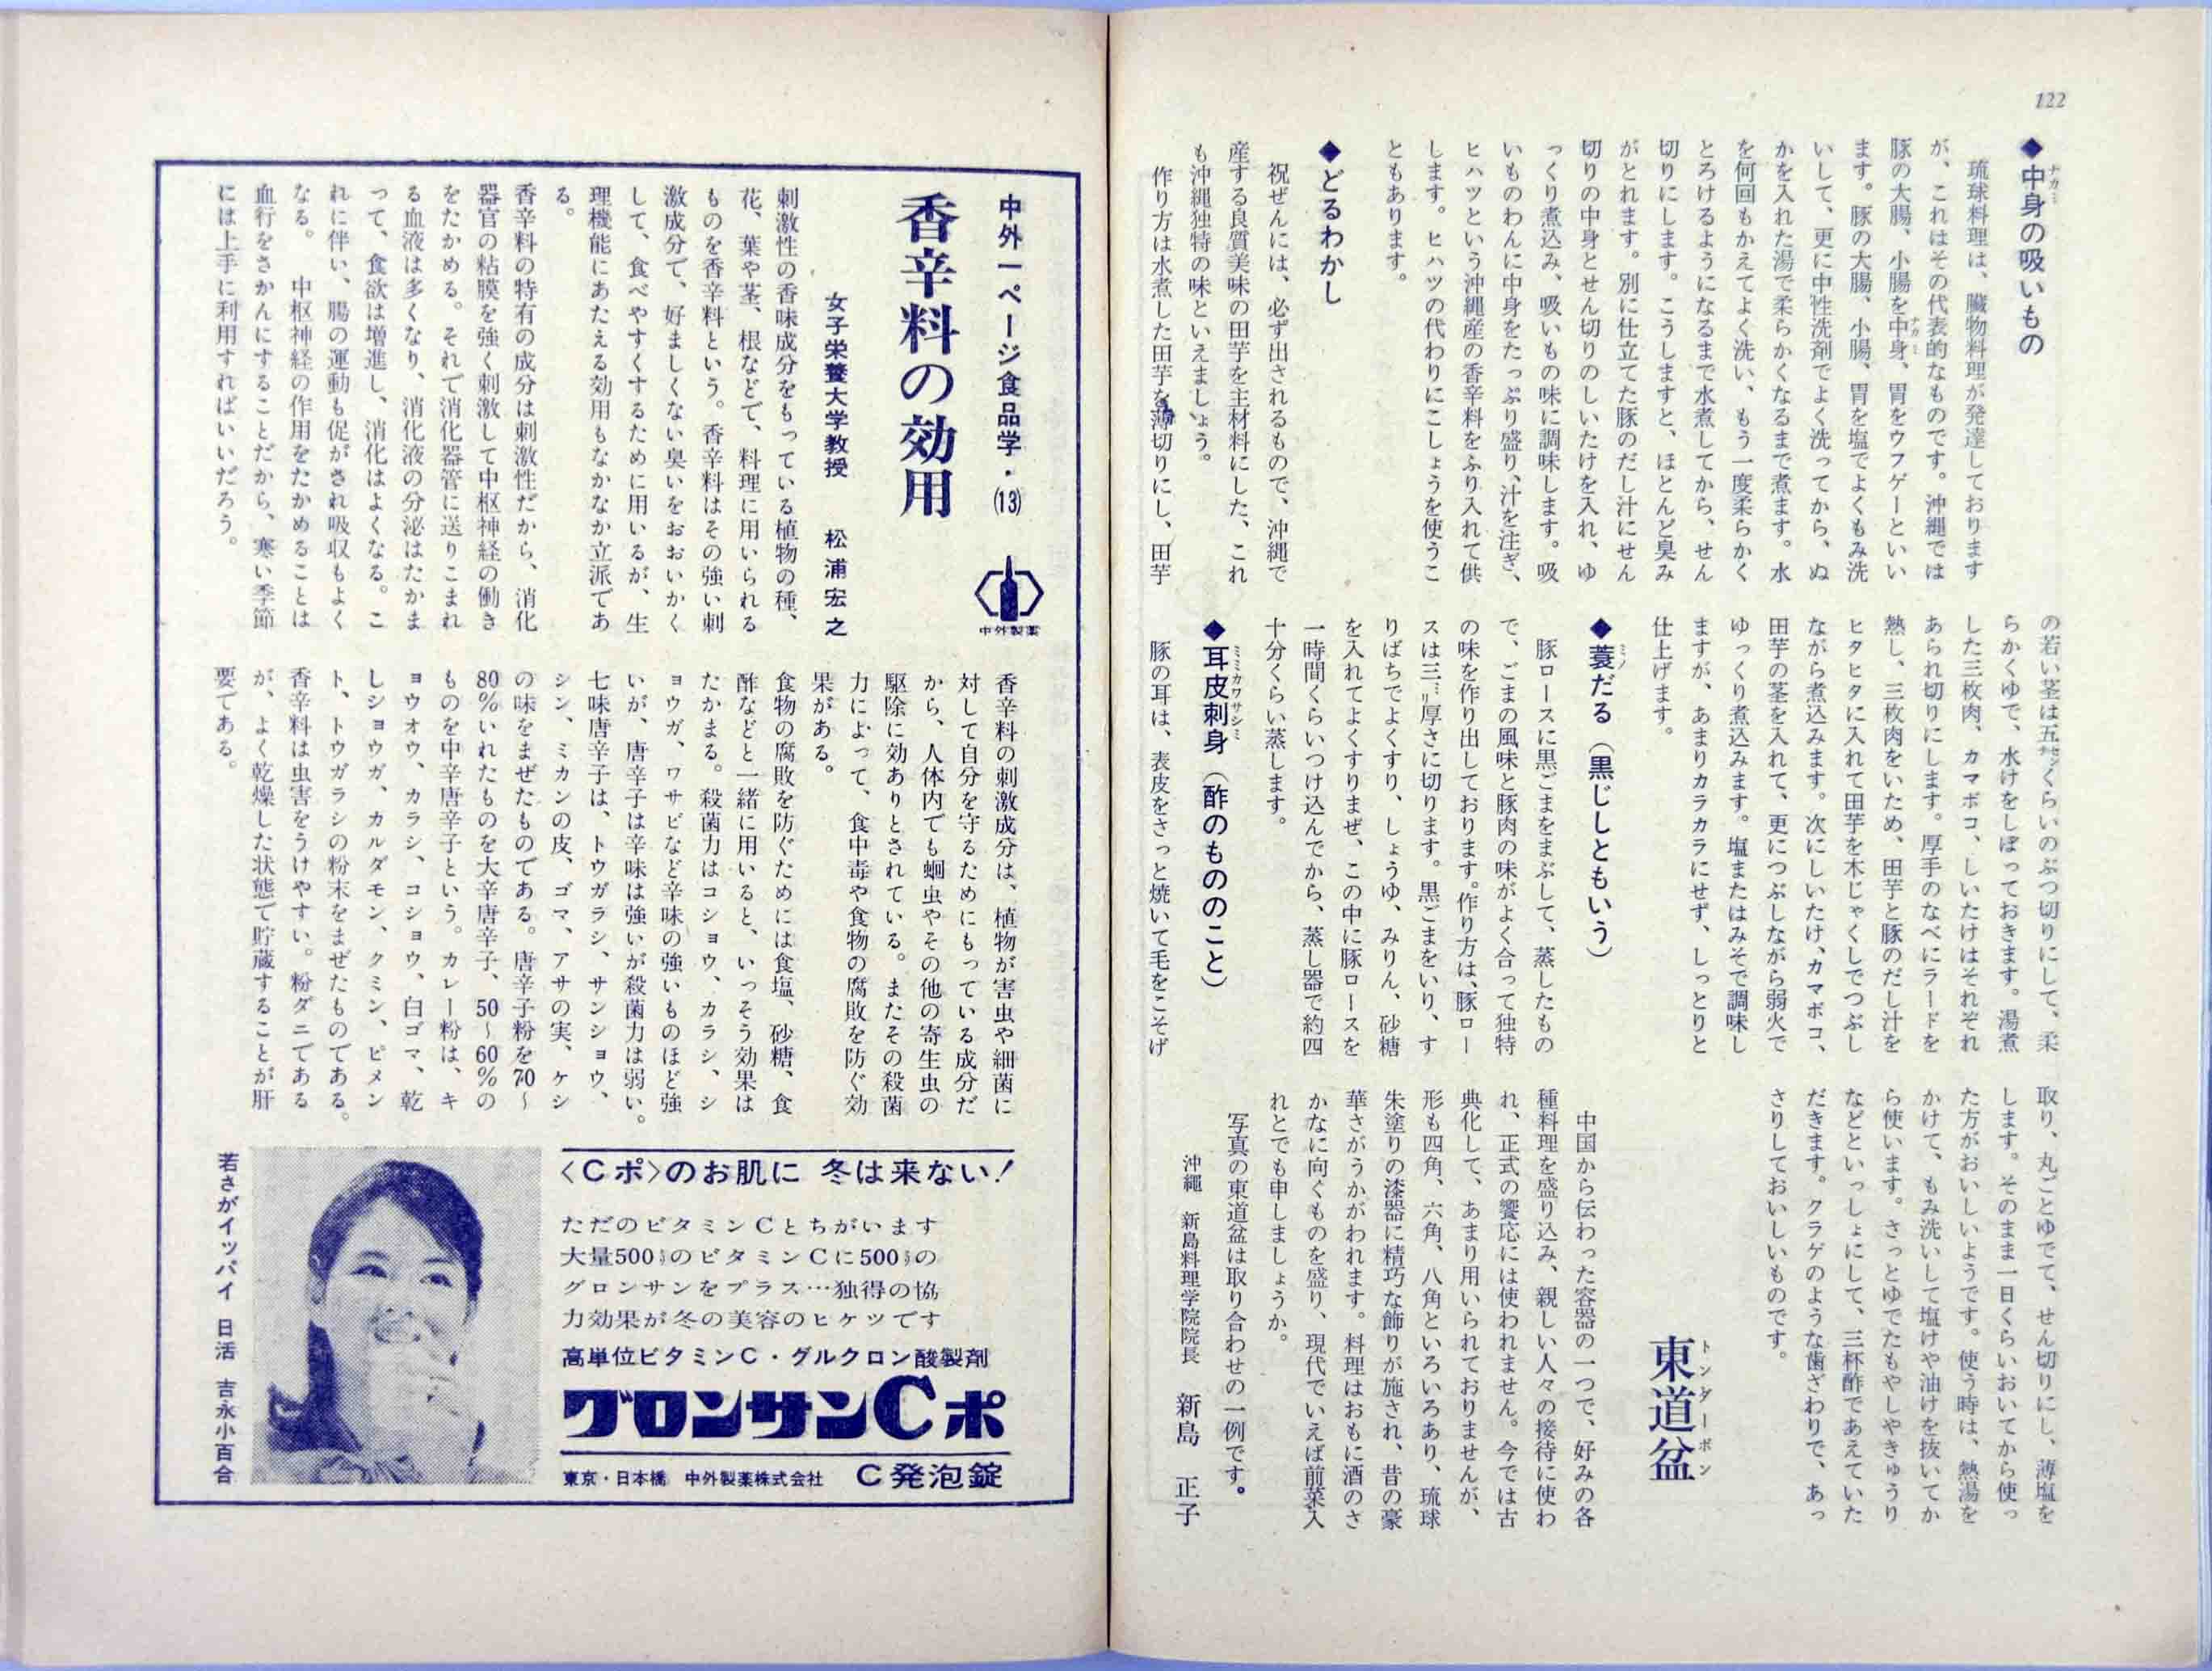 122
◆中身の吸いもの
琉球料理は、臓物料理が発達しております
が、これはその代表的なものです。沖縄では
豚の大腸、小腸を中身、胃をウフゲーといい
ます。豚の大腸、小腸、胃を塩でよくもみ洗
いして、更に中性洗剤でよく洗ってから、ぬ
かを入れた湯で柔らかくなるまで煮ます。水
を何回もかえてよく洗い、もう一度柔らかく
とろけるようになるまで水煮してから、せん
切りにします。こうしますと、ほとんど臭み
がとれます。別に仕立てた豚のだし汁にせん
切りの中身とせん切りのしいたけを入れ、ゆ
っくり煮込み、吸いもの味に調味します。吸
いものわんに中身をたっぷり盛り、汁を注ぎ、
ヒハツという沖縄産の香辛料をふり入れて供
します。ヒハツの代わりにこしょうを使うこ
ともあります。
◆どるわかし
祝ぜんには、必ず出されるもので、沖縄で
産する良質美味の田芋を主材料にした、これ
も沖縄独特の味といえましょう。
作り方は水煮した田芋を薄切りにし、田芋
の若い茎は五㌢くらいのぶつ切りにして、柔
らかくゆで、水けをしぼっておきます。湯煮
した三枚肉、カマボコ、しいたけはそれぞれ
あられ切りにします。厚手のなべにラードを
熱し、三枚肉をいため、田芋と豚のだし汁を
ヒタヒタに入れて田芋を木じゃくしでつぶし
ながら煮込みます。次にしいたけ、カマボコ、
田芋の茎を入れて、更につぶしながら弱火で
ゆっくり煮込みます。塩またはみそで調味し
ますが、あまりカラカラにせず、しっとりと
仕上げます。
◆蓑だる（黒じしともいう）
豚ロースに黒ごまをまぶして、蒸したもの
で、ごまの風味と豚肉の味がよく合って独特
の味を作り出しております。作り方は、豚ロー
スは三㍉厚さに切ります。黒ごまをいり、す
りばちでよくすり、しょうゆ、みりん、砂糖
を入れてよくすりまぜ、この中に豚ロースを
一時間くらいつけ込んでから、蒸し器で約四
十分くらい蒸します。
◆耳皮刺身（酢のもののこと）
豚の耳は、表皮をさっと焼いて毛をこそげ
取り、丸ごとゆでて、せん切りにし、薄塩を
します。そのまま一日くらいおいてから使っ
た方がおいしいようです。使う時は、熱湯を
かけて、もみ洗いして塩けや油けを抜いてか
ら使います。さっとゆでたもやしやきゅうり
などといっしょにして、三杯酢であえていた
だきます。クラゲのような歯ざわりで、あっ
さりしておいしいものです。
東道盆
中国から伝わった容器の一つで、好みの各
種料理を盛り込み、親しい人々の接待に使わ
れ、正式の饗応には使われません。今では古
典化して、あまり用いられておりませんが、
形も四角、六角、八角といろいろあり、琉球
朱塗りの漆器に精巧な飾りが施され、昔の豪
華さがうかがわれます。料理はおもに酒のさ
かなに向くものを盛り、現代でいえば前菜入
れとでも申しましょうか。
写真の東道盆は取り合わせの一例です。
沖縄 新島料理学院院長 新島 正子
中外一ページ食品学・(13)
中外製薬
香辛料の効用
女子栄養大学教授 松浦宏之
刺激性の香味成分をもっている植物の種、
花、葉や茎、根などで、料理に用いられる
ものを香辛料という。香辛料はその強い刺
激成分で、好ましくない臭いをおおいかく
して、食べやすくするために用いるが、生
理機能にあたえる効用もなかなか立派であ
る。
香辛料の特有の成分は刺激性だから、消化
器官の粘膜を強く刺激して中枢神経の働き
をたかめる。それで消化器管に送りこまれ
る血液は多くなり、消化液の分泌はたかま
って、食欲は増進し、消化はよくなる。こ
れに伴い、腸の運動も促がされ吸収もよく
なる。 中枢神経の作用をたかめることは
血行をさかんにすることだから、寒い季節
には上手に利用すればいいだろう。
香辛料の刺激成分は、植物が害虫や細菌に
対して自分を守るためにもっている成分だ
から、人体内でも蛔虫やその他の寄生虫の
駆除に効ありとされている。またその殺菌
力によって、食中毒や食物の腐敗を防ぐ効
果がある。
食物の腐敗を防ぐためには食塩、砂糖、食
酢などと一緒に用いると、いっそう効果は
たかまる。殺菌力はコショウ、カラシ、シ
ョウガ、ワサビなど辛味の強いものほど強
いが、唐辛子は辛味は強いが殺菌力は弱い。
七味唐辛子は、トウガラシ、サンショウ、
シン、ミカンの皮、ゴマ、アサの実、ケシ
の味をまぜたものである。唐辛子粉を70～
80％いれたものを大辛唐辛子、50～60％の
ものを中辛唐辛子という。カレー粉は、キ
ョウオウ、カラシ、コショウ、白ゴマ、乾
しショウガ、カルダモン、クミン、ピメン
ト、トウガラシの粉末をまぜたものである。
香辛料は虫害をうけやすい。粉ダニである
が、よく乾燥した状態で貯蔵することが肝
要である。
〈Cポ〉のお肌に 冬は来ない!
ただのビタミンCとちがいます
大量500㍉のビタミンCに500㍉の
グロンサンをプラス…独得の協
力効果が冬の美容のヒケツです
高単位ビタミンC・グルクロン酸製剤
グロンサンCポ
東京・日本橋 中外製薬株式会社 C発泡錠
若さがイッパイ 日活 吉永小百合